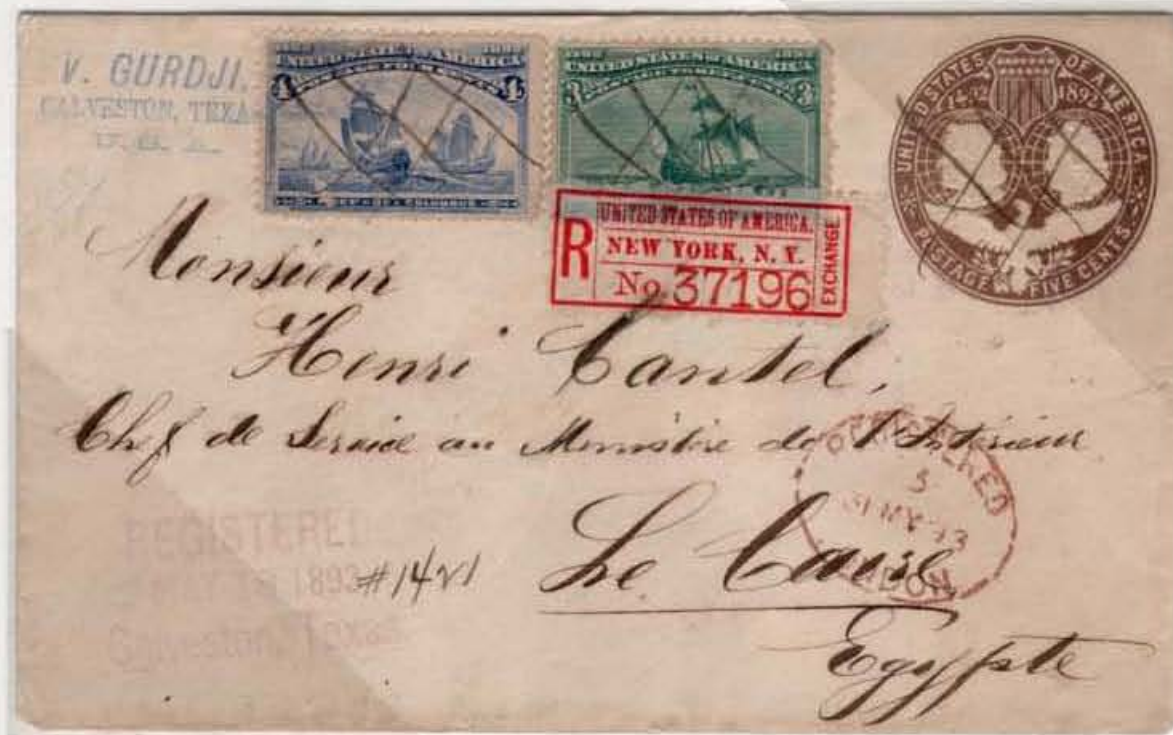 V. GURDJI.
GALVESTON, TEXA
U.S.A.
1492 1892
UNITED STATES OF AMERICA
4 4
COLUMBUS
1492 1892
UNITED STATES OF AMERICA
3 3
UNITED STATES OF AMERICA
1492 1892
POSTAGE FIVE CENTS
R
UNITED STATES OF AMERICA.
NEW YORK, N. Y.
No. 37196
EXCHANGE
Monsieur
Henri Cantel,
Chef de Service au Ministère de l'Intérieur
Le Caire
Egypte
REGISTERED
5
31 MY 93
LONDON
REGISTERED
MAY 1893
Galveston, Texas
#1421